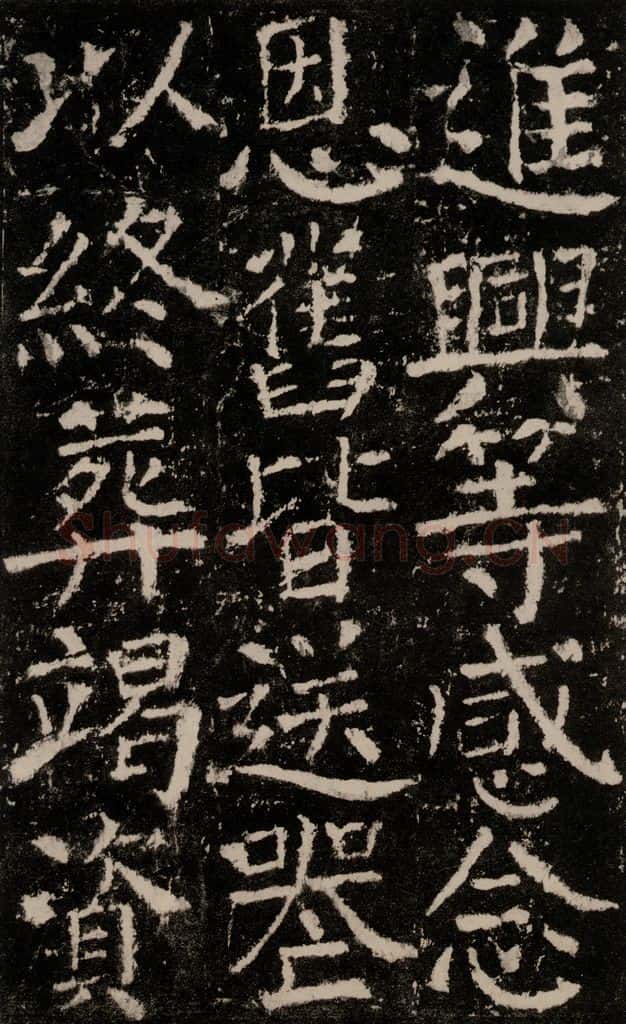 進興等感念
恩舊皆送喪
以終葬竭資
Shufawang.CN